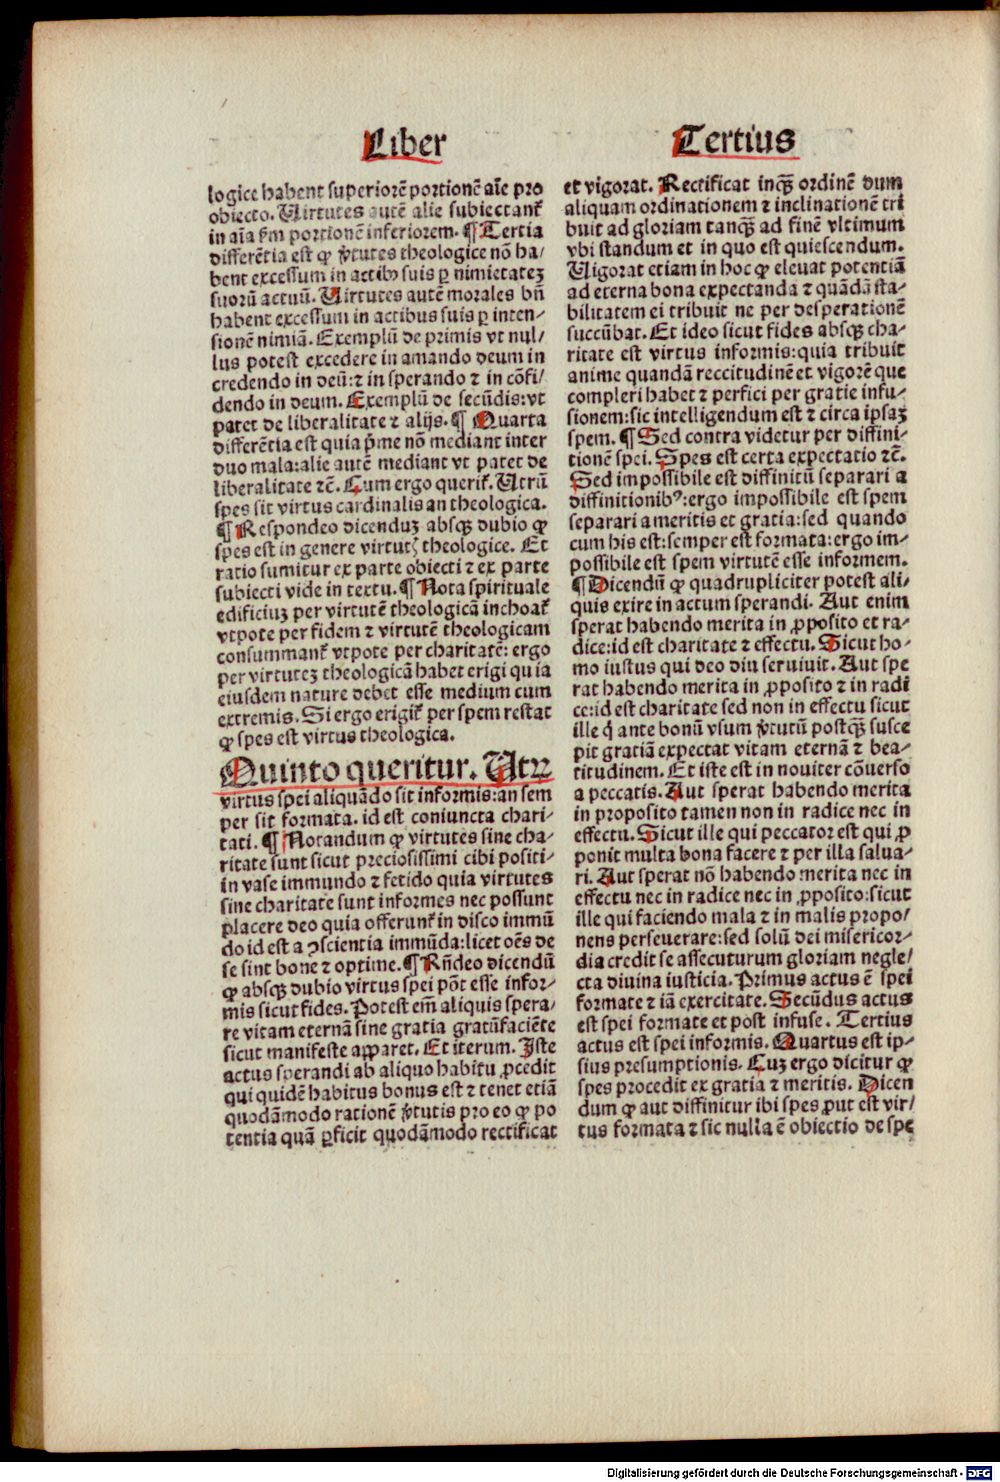 Liber
Tertius
logice habent superiorē portionē aīe pro
obiecto. Uirtutes autē alie subiectanť
in aīa ẜm portionē inferiorem. ¶ Tertia
differētia est ꝙ ꝟtutes theologice nō ha-
bent excessum in actibꝰ suis ꝑ nimietateꝫ
suorū actuū. Uirtutes autē morales bn̄
habent excessum in actibus suis ꝑ inten-
sionē nimiā. Exemplū de primis vt nul/
lus potest excedere in amando deum in
credendo in deū: ⁊ in sperando ⁊ in cōfi/
dendo in deum. Exemplū de secūdis: vt
patet de liberalitate ⁊ alijs. ¶ Quarta
differētia est quia p̄me nō mediant inter
duo mala: alie autē mediant vt patet de
liberalitate ⁊c̄. Cum ergo querif. Utrū
spes sit virtus cardinalis an theologica.
¶ Respondeo dicenduꝫ absqꝫ dubio ꝙ
spes est in genere virtutꝭ theologice. Et
ratio sumitur ex parte obiecti ⁊ ex parte
subiecti vide in textu. ¶ Nota spirituale
edificiuꝫ per virtutē theologicā inchoať
vtpote per fidem ⁊ virtutē theologicam
consummanť vtpote per charitatē: ergo
per virtuteꝫ theologicā habet erigi quia
eiusdem nature debet esse medium cum
extremis. Si ergo erigiť per spem restat
ꝙ spes est virtus theologica.
Quinto queritur. Utꝝ
virtus spei aliquādo sit informis: an sem
per sit formata. id est coniuncta chari-
tati. ¶ Notandum ꝙ virtutes sine cha-
ritate sunt sicut preciosissimi cibi positi-
in vase immundo ⁊ fetido quia virtutes
sine charitate sunt informes nec possunt
placere deo quia offerunť in disco immū
do id est a ↄscientia immūda: licet oēs de
se sint bone ⁊ optime. ¶ Rn̄deo dicendū
ꝙ absqꝫ dubio virtus spei pōt esse infor-
mis sicut fides. Potest em̄ aliquis spera-
re vitam eternā sine gratia gratūfaciēte
sicut manifeste apparet. Et iterum. Iste
actus sperandi ab aliquo habitu ꝓcedit
qui quidē habitus bonus est ⁊ tenet etiā
quodāmodo rationē ꝟtutis pro eo ꝙ po
tentia quā ꝑficit quodāmodo rectificat
et vigorat. Rectificat inqꝫ̄ ordinē dum
aliquam ordinationem ⁊ inclinationē tri
buit ad gloriam tanqꝫ̄ ad finē vltimum
vbi standum et in quo est quiescendum.
Uigorat etiam in hoc ꝙ eleuat potentiā
ad eterna bona expectanda ⁊ quādā sta-
bilitatem ei tribuit ne per desperationē
succūbat. Et ideo sicut fides absqꝫ cha-
ritate est virtus informis: quia tribuit
anime quandā reccitudinē et vigorē que
compleri habet ⁊ perfici per gratie infu-
sionem: sic intelligendum est ⁊ circa ipsaꝫ
spem. ¶ Sed contra videtur per diffini-
tionē spei. Spes est certa expectatio ⁊c̄.
Sed impossibile est diffinitū separari a
diffinitionibꝰ: ergo impossibile est spem
separari a meritis et gratia: sed quando
cum his est: semper est formata: ergo im-
possibile est spem virtutē esse informem.
¶ Dicendū ꝙ quadrupliciter potest ali-
quis exire in actum sperandi. Aut enim
sperat habendo merita in ꝓposito et ra-
dice: id est charitate ⁊ effectu. Sicut ho-
mo iustus qui deo diu seruiuit. Aut spe
rat habendo merita in ꝓposito ⁊ in radi
ce: id est charitate sed non in effectu sicut
ille q̇ ante bonū vsum ꝟtutū postqꝫ̄ susce
pit gratiā expectat vitam eternā ⁊ bea-
titudinem. Et iste est in nouiter cōuerso
a peccatis. Aut sperat habendo merita
in proposito tamen non in radice nec in
effectu. Sicut ille qui peccator est qui ꝓ
ponit multa bona facere ⁊ per illa salua-
ri. Aut sperat nō habendo merita nec in
effectu nec in radice nec in ꝓposito: sicut
ille qui faciendo mala ⁊ in malis propo/
nens perseuerare: sed solū dei misericor-
dia credit se assecuturum gloriam negle/
cta diuina iusticia. Primus actus ē spei
formate ⁊ iā exercitate. Secūdus actus
est spei formate et post infuse. Tertius
actus est spei informis. Quartus est ip-
sius presumptionis. Cuꝫ ergo dicitur ꝙ
spes procedit ex gratia ⁊ meritis. Dicen
dum ꝙ aut diffinitur ibi spes ꝓut est vir/
tus formata ⁊ sic nulla ē obiectio de spe
Digitalisierung gefördert durch die Deutsche Forschungsgemeinschaft - DFG